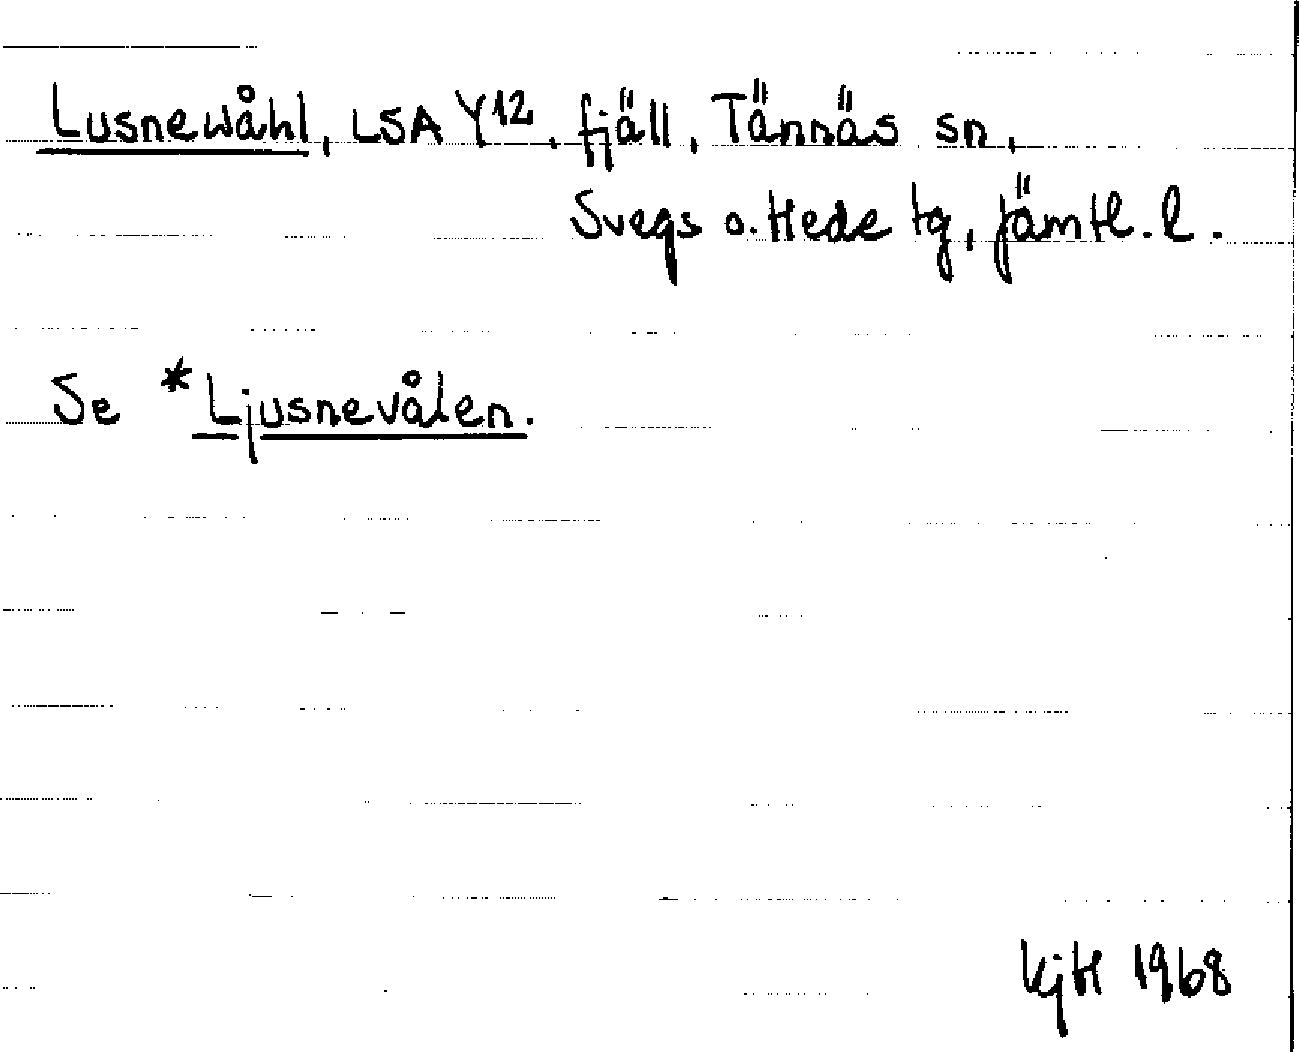 Lusnewåhl, LSA Y12, fjäll, Tännäs sn,
Svegs o. Hede tg, Jämtl. l.
Se *Ljusnevålen.
KjH 1968